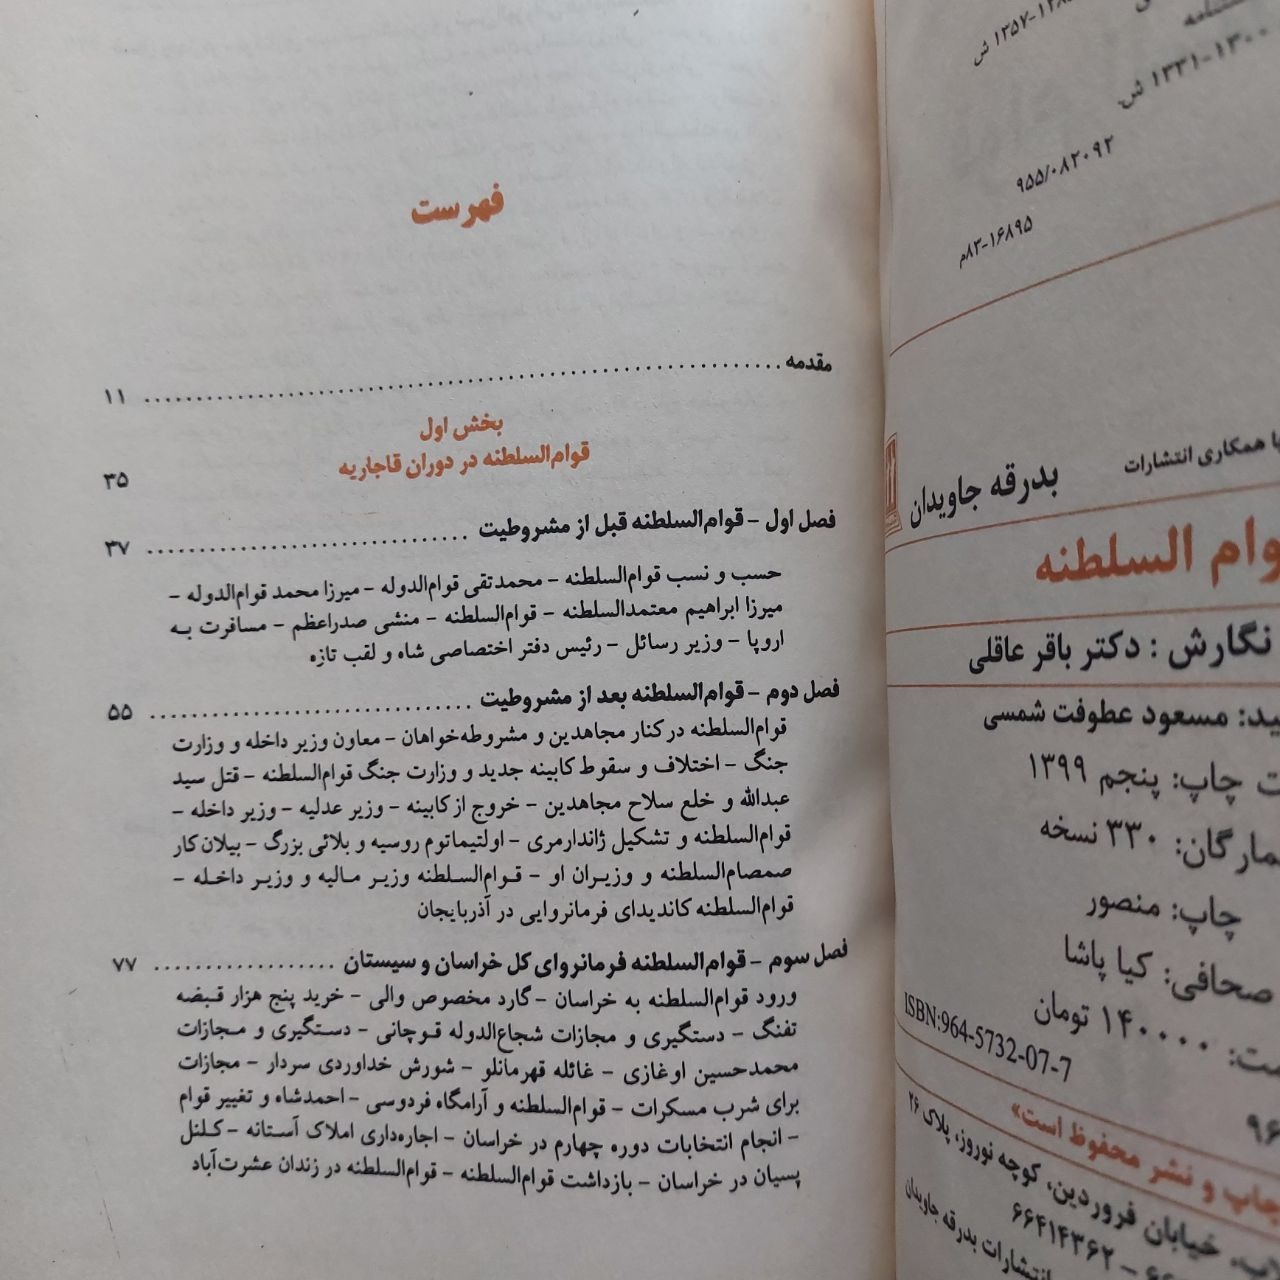 ۱۳۵۷-۱۲۸
ش
۱۳۳۱-۱۳۰۰ ش.
۹۵۵/۰۸۲۰۹۲
۸۳-۱۶۸۹۵م
با همکاری انتشارات
بدرقه جاویدان
وام السلطنه
نگارش : دکتر باقر عاقلی
ید: مسعود عطوفت شمسی
ت چاپ: پنجم ۱۳۹۹
مارگان: ۳۳۰ نسخه
چاپ: منصور
صحافی: کیا پاشا
مت: ۱۴۰۰۰۰ تومان
ISBN:964-5732-07-7
۹۶
چاپ و نشر محفوظ است»
خیابان فروردین، کوچه نوروز، پلاک ۲۶
۶۶۴۱۴۳۶۲ –
انتشارات بدرقه جاویدان
فهرست
مقدمه ........ ۱۱
بخش اول
قوام‌السلطنه در دوران قاجاریه ۳۵
فصل اول – قوام‌السلطنه قبل از مشروطیت ........ ۳۷
حسب و نسب قوام‌السلطنه – محمدتقی قوام‌الدوله – میرزا محمد قوام‌الدوله –
میرزا ابراهیم معتمدالسلطنه – قوام‌السلطنه – منشی صدراعظم – مسافرت به
اروپا – وزیر رسائل – رئیس دفتر اختصاصی شاه و لقب تازه
فصل دوم – قوام‌السلطنه بعد از مشروطیت ........ ۵۵
قوام‌السلطنه در کنار مجاهدین و مشروطه‌خواهان – معاون وزیر داخله و وزارت
جنگ – اختلاف و سقوط کابینه جدید و وزارت جنگ قوام‌السلطنه – قتل سید
عبدالله و خلع سلاح مجاهدین – خروج از کابینه – وزیر عدلیه – وزیر داخله –
قوام‌السلطنه و تشکیل ژاندارمری – اولتیماتوم روسیه و بلائی بزرگ – بیلان کار
صمصام‌السلطنه و وزیران او – قوام‌السلطنه وزیر مالیه و وزیر داخله –
قوام‌السلطنه کاندیدای فرمانروایی در آذربایجان
فصل سوم – قوام‌السلطنه فرمانروای کل خراسان و سیستان ........ ۷۷
ورود قوام‌السلطنه به خراسان – گارد مخصوص والی – خرید پنج هزار قبضه
تفنگ – دستگیری و مجازات شجاع‌الدوله قوچانی – دستگیری و مجازات
محمدحسین اوغازی – غائله قهرمانلو – شورش خداوردی سردار – مجازات
برای شرب مسکرات – قوام‌السلطنه و آرامگاه فردوسی – احمدشاه و تغییر قوام
– انجام انتخابات دوره چهارم در خراسان – اجاره‌داری املاک آستانه – کلنل
پسیان در خراسان – بازداشت قوام‌السلطنه – قوام‌السلطنه در زندان عشرت‌آباد